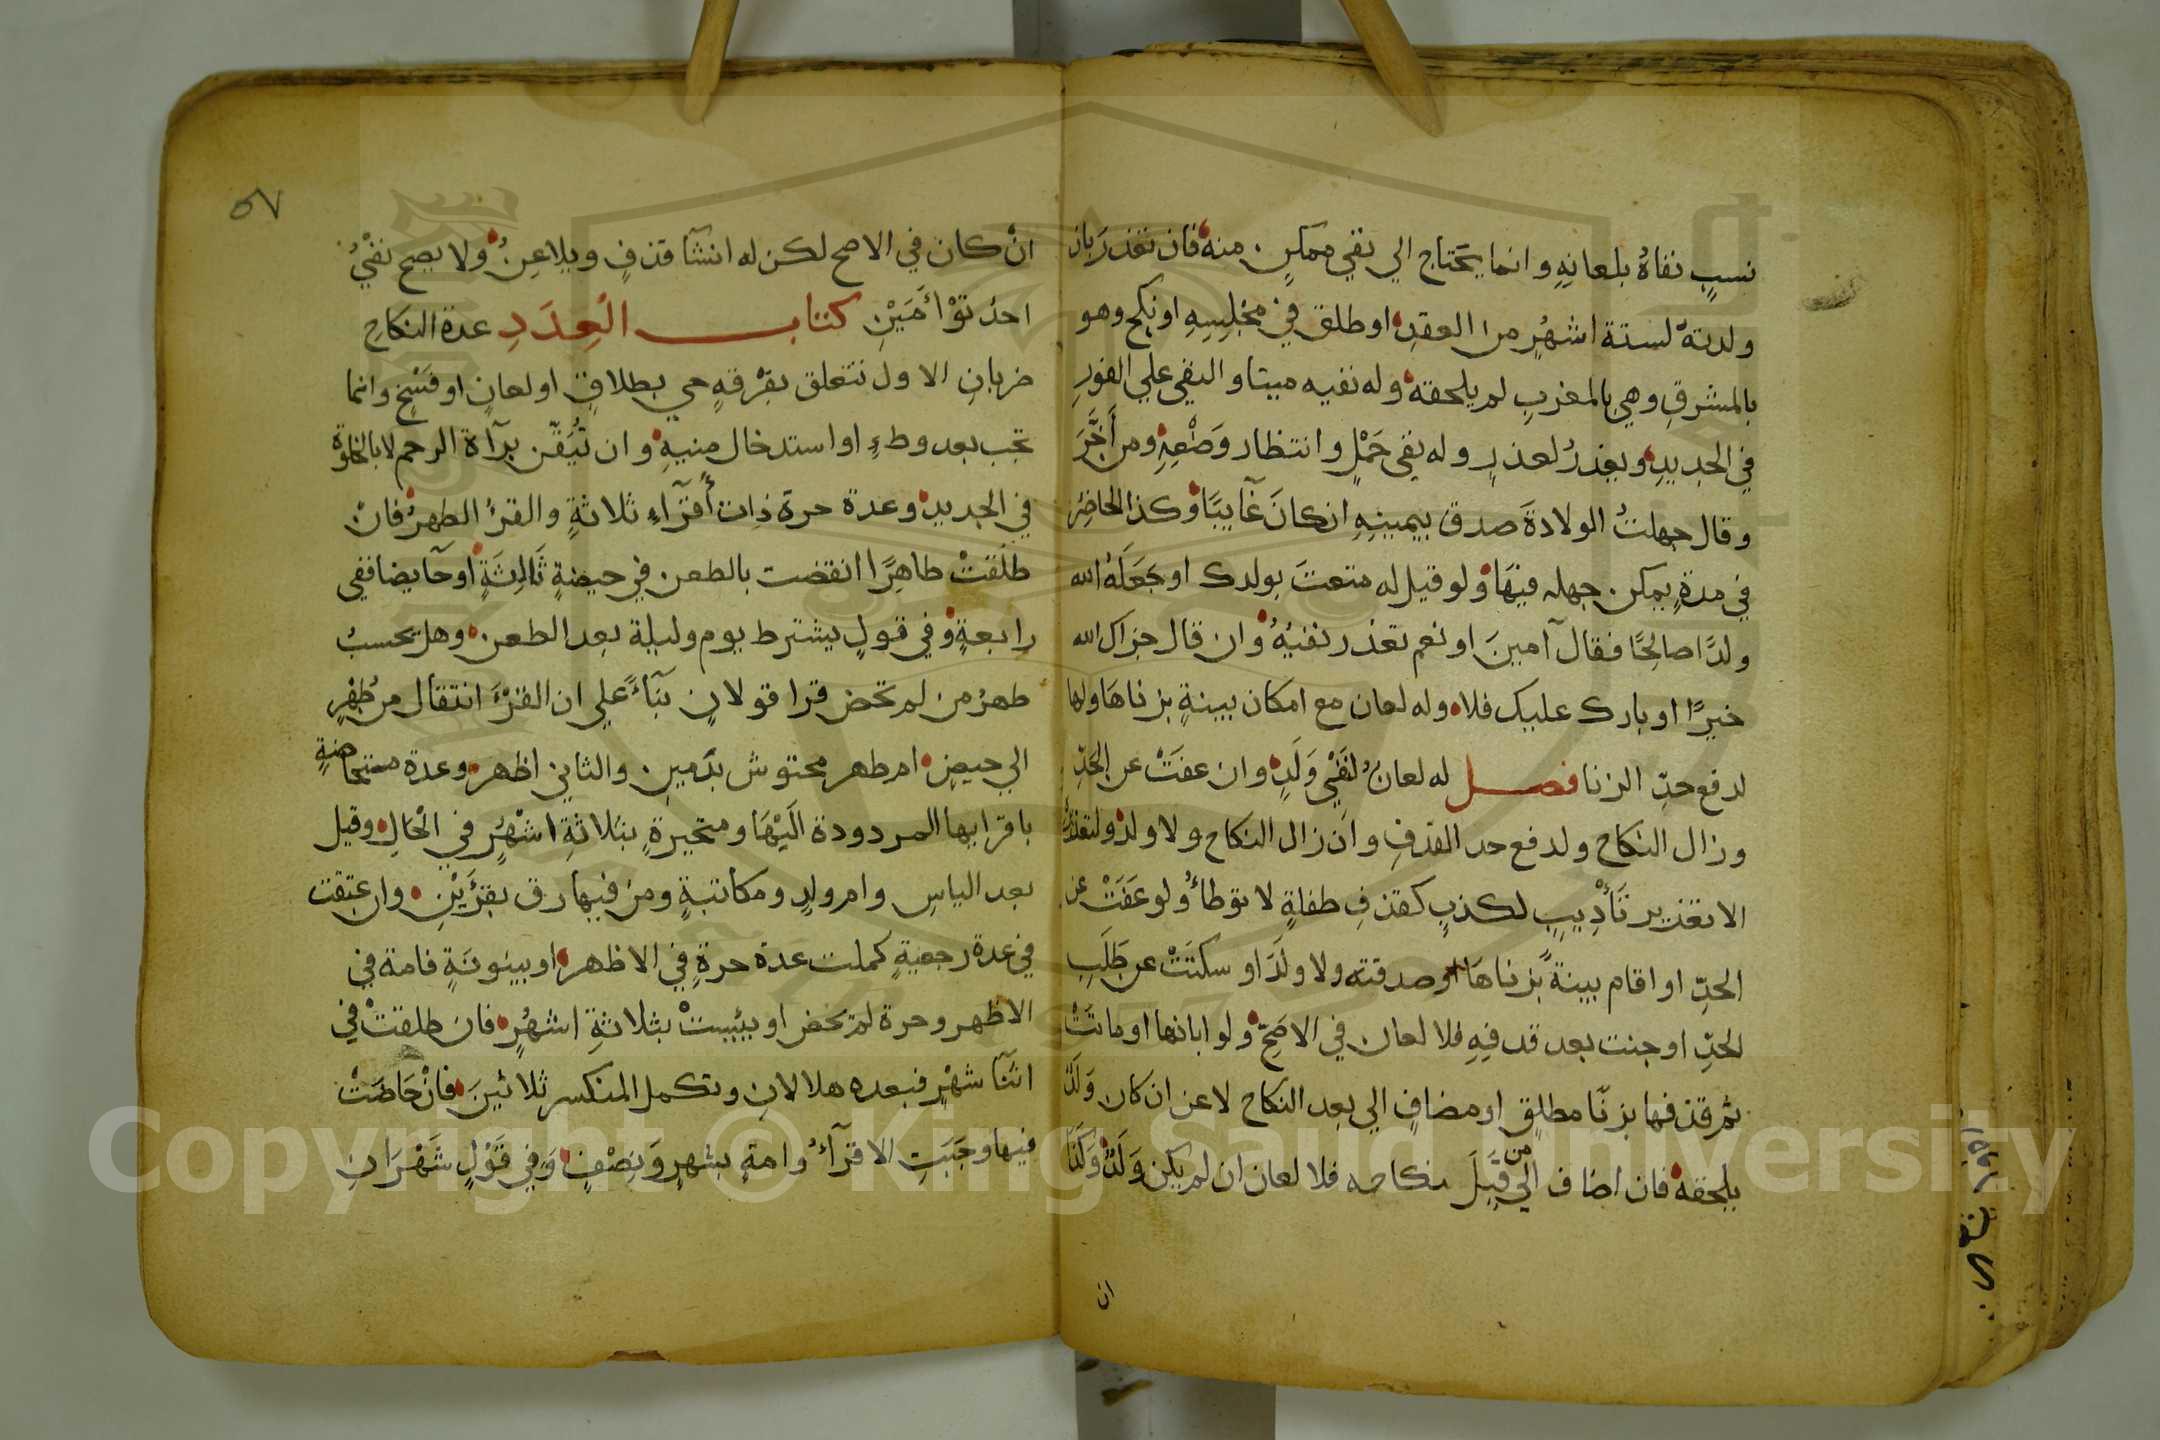 نسبٍ نفاهُ بلعانِهِ وانما يحتاج الي نفي ممكنٍ منه فان تعذر بان
ولدته لستة اشهُرٍ من العقدِ او طلق في مجلِسِهِ او نكح وهو
بالمشرقِ وهي بالمغربِ لم يلحقه وله نفيه ميتا والنفي علي الفورِ
في الجديدِ ويعذرُ لعذرٍ وله نفي حَمْلٍ وانتظار وَضْعِهِ ومن أَخَّرَ
وقال جهلتُ الولادةَ صدق بيمينِهِ ان كانَ غآيبًا وكذا الحاضِرُ
في مدةٍ يمكن جهله فيهَا ولو قيل له متعتَ بولدك او جَعَلَهُ الله
ولدًا صالحًا فقال آمينَ او نعم تعذر نفيُهُ وان قال جزاك الله
خيرًا او بارك عليك فلا وله لعان مع امكان بينةٍ بزناهَا ولها
لدفع حدِّ الزنا فصل له لعانٌ لنَفْيِ وَلَدٍ وان عفَتْ عن الحَدِّ
وزال النكاح ولدفع حد القذفِ وان زال النكاح ولا ولد ولتعذيرٍ
الا تعذير تَأْدِيبٍ لكذبٍ كقذفِ طفلةٍ لا توطأُ ولو عَفَتْ عن
الحدِّ او اقام بينةً بزناهَا او صدقته ولا ولَدَ او سكتَتْ عن طَلَبِ
الحدِّ او جنت بعد قدفِهِ فلا لعان في الاصَحِّ ولو ابانها او ماتَتْ
ثم قذفها بزنًا مطلقٍ او مضافٍ الي بعد النكاح لاعن ان كان وَلَدٌ
يلحقه فان اضاف الي من قَبْلَ نكاحه فلا لعان ان لم يكن وَلَدٌ وَكَذَا
ان
٥٧
انْ كان في الاصح لكن له انشآ قذفٍ ويلاعِنُ ولا يصح نفْيُ
احد تَوْأَمَيْنِ كتاب العِدَدِ عدة النكاحِ
ضربانِ الاول تتعلق بفِرْقهٍ حي بطلاقٍ او لعانٍ او فَسْخٍ وانما
تجب بعد وطءٍ او استدخال منيهِ وان تُيُقّن برآة الرحم لا بالخلوة
في الجديد وعدة حرة ذات أَقْرَآءٍ ثلاثةٍ والقرؤ الطهرُ فانْ
طلقتْ طاهِرًا انقضت بالطعن في حيضةٍ ثَالِثَةٍ او حآيضا ففي
رابعةٍ وفي قولٍ يشترط يوم وليلة بعد الطعن وهل يحسبُ
طهرُ من لم تحض قرا قولانِ بنآءً علي ان القرْءَ انتقال من طُهْرٍ
الي حيضٍ ام طهر محتوش بدَمينِ والثاني اظهر وعدة مستحاضةٍ
باقرايها المردودة الَيْهَا ومتحيرةٍ بثلاثةِ اشْهُرٍ في الحَالِ وقيل
بعد الياسِ وام ولدٍ ومكاتبةٍ ومن فيها رق بقُرْءَيْنِ وان عتقت
في عدة رجعيةٍ كملت عدة حرةٍ في الاظهر او بينونَةٍ فامة في
الاظهر وحرة لم تحض او يئيستْ بثلاثةِ اشهُرٍ فان طلقتْ في
اثنآ شهْرٍ فبعده هلالانِ وتكمل المنكسر ثلاثينَ فانْ حَاضَتْ
فيها وجَبَتِ الاقرآءُ وامةٍ بشهرٍ وَنِصْفٍ وَفي قَوْلٍ شَهْرَانِ
Copyright © King Saud University